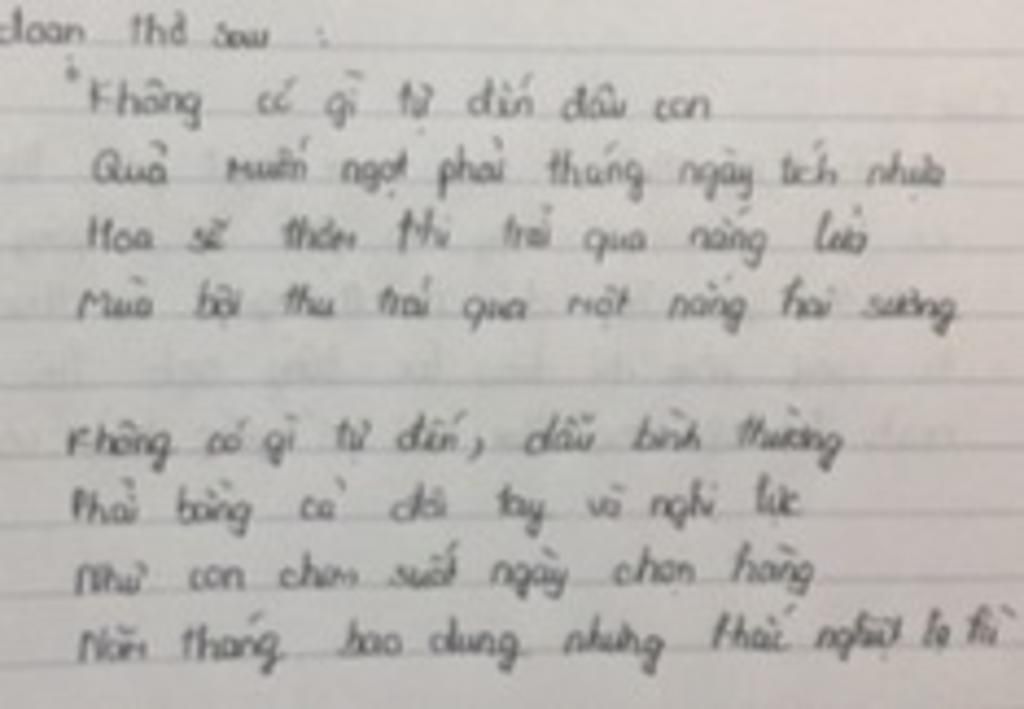 đoạn thơ sau :
"Không có gì tự đến đâu con
Quả muốn ngọt phải tháng ngày tích nhựa
Hoa sẽ thơm khi trải qua nắng lửa
Mùa bội thu trải qua một nắng hai sương
Không có gì tự đến, dẫu bình thường
Phải bằng cả đôi tay và nghị lực
Như con chim suốt ngày chọn hạng
Năm tháng bao dung nhưng khắc nghiệt lạ kì